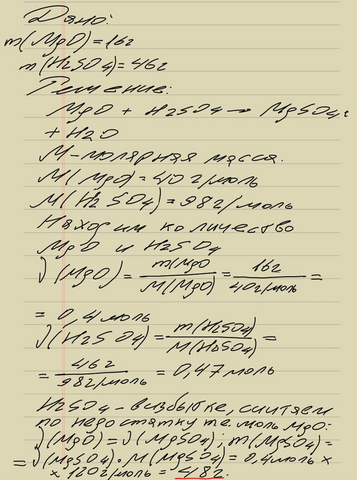 Дано:
m(MgO)=16г
m(H2SO4)=46г
Решение:
MgO + H2SO4 → MgSO4
+ H2O
M-молярная масса.
M(MgO)=40 г/моль
M(H2SO4)=98г/моль
Находим количество
MgO и H2SO4
ν(MgO) = m(MgO / M(MgO) = 16г / 40г/моль =
= 0,4 моль
ν(H2SO4) = m(H2SO4) / M(H2SO4) =
= 46г / 98г/моль = 0,47 моль
H2SO4 - в избытке, считаем
по недостатку те моль MgO:
ν(MgO)=ν(MgSO4; m(MgSO4)=
=ν(MgSO4)·M(MgSO4)=0,4моль×
×120г/моль=48г.